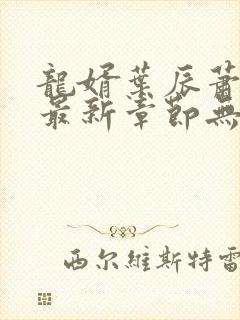 龍婿葉辰蕭
最新章節無
西尔維斯特雷